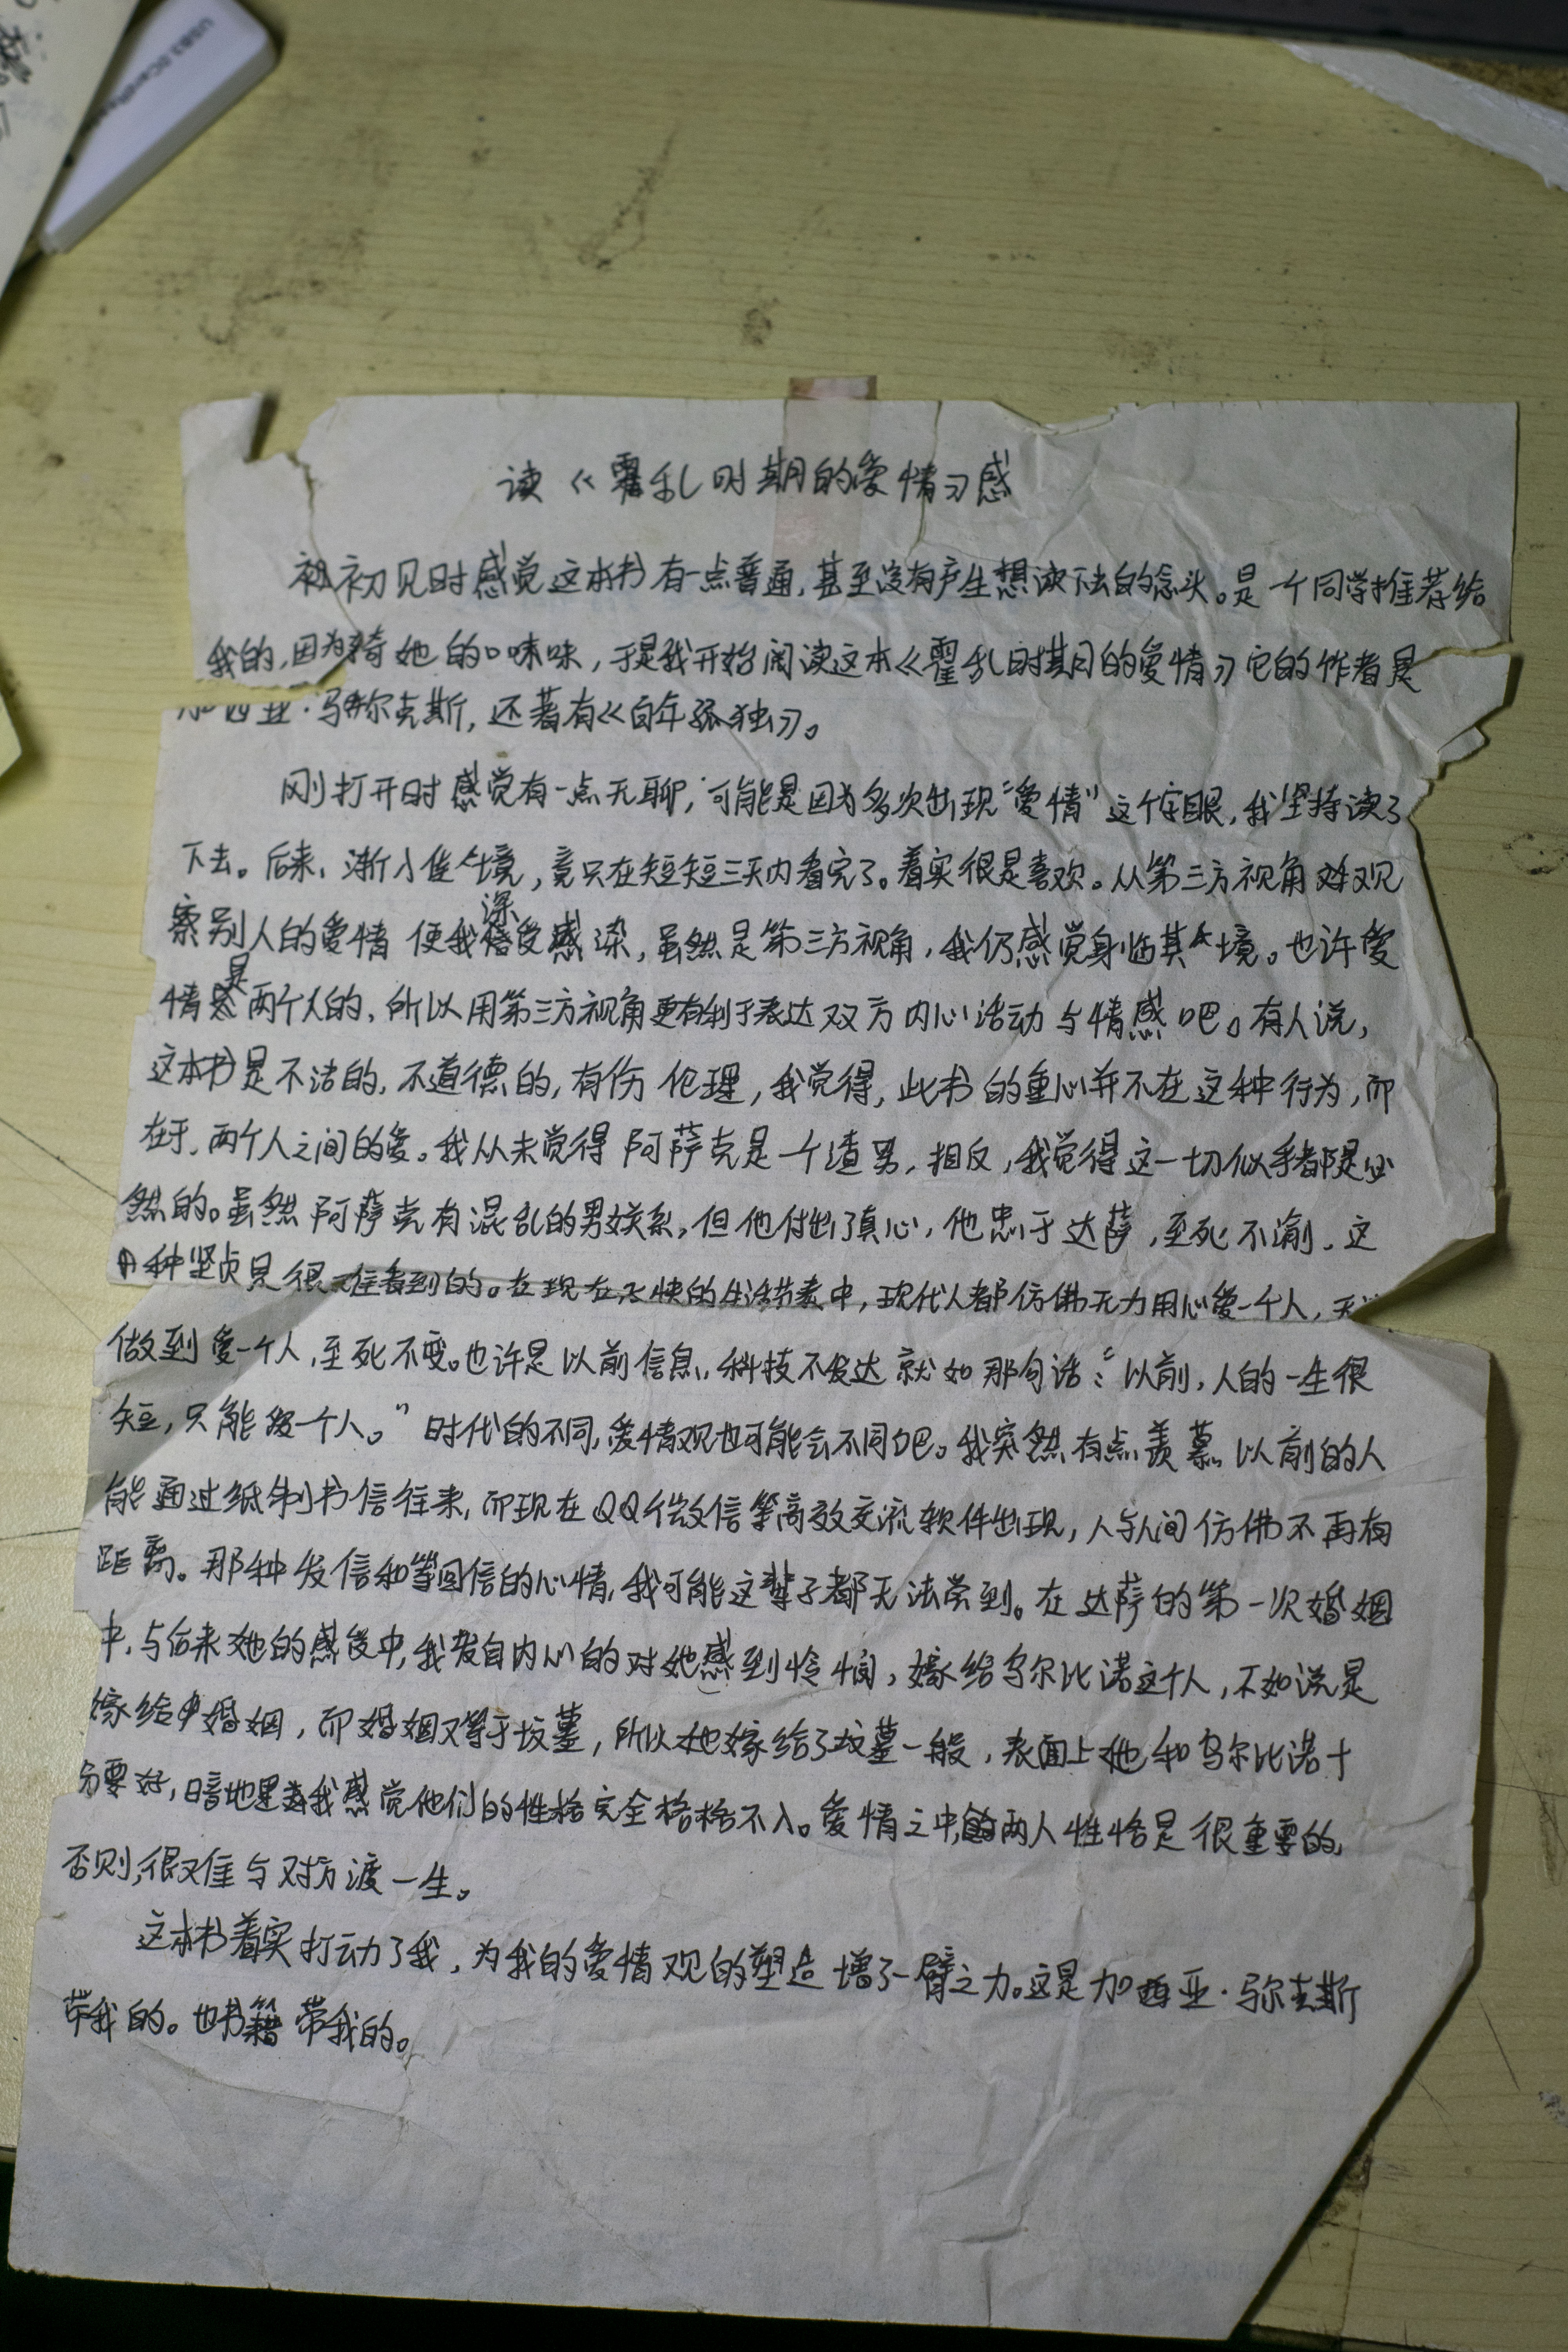 读《霍乱时期的爱情》感
初初见时感觉这本书有一点普通,甚至没有产生想读下去的念头。是一个同学推荐给
我的,因为猜她的口味味,于是我开始阅读这本《霍乱时期的爱情》它的作者是
加西亚·马尔克斯,还著有《百年孤独》。
刚打开时感觉有一点无聊,可能是因为多次出现“爱情”这个字眼,我坚持读了
下去。后来,渐入佳境,竟只在短短三天内看完了。着实很是喜欢。从第三方视角观
察别人的爱情 使我深受感染,虽然是第三方视角,我仍感觉身临其境。也许爱
情是两个人的,所以用第三方视角更有利于表达双方内心活动与情感吧。有人说,
这本书是不洁的,不道德的,有伤伦理,我觉得,此书的重心并不在这种行为,而
在于,两个人之间的爱。我从未觉得阿萨克是一个渣男,相反,我觉得这一切似乎都是必
然的。虽然阿萨克有混乱的男女关系,但他付出了真心,他忠于达萨,至死不渝,这
种坚贞是很难看到的。在现在飞快的生活节奏中,现代人都仿佛无力用心爱一个人,
做到爱一个人,至死不变。也许是以前信息,科技不发达就如那句话:“以前,人的一生很
短,只能爱一个人。”时代的不同,爱情观也可能会不同吧。我突然有点羡慕以前的人
能通过纸制书信往来,而现在QQ个微信等高效交流软件出现,人与人间仿佛不再有
距离。那种发信和等回信的心情,我可能这辈子都无法尝到。在达萨的第一次婚姻
中,与后来她的感受中,我发自内心的对她感到怜悯,嫁给乌尔比诺这个人,不如说是
嫁给婚姻,而婚姻又等于坟墓,所以她嫁给了坟墓一般,表面上她和乌尔比诺十
分要好,暗地里我感觉他们的性格完全格格不入。爱情之中,两人性格是很重要的,
否则,很难与对方渡一生。
这本书着实打动了我,为我的爱情观的塑造增了一臂之力。这是加西亚·马尔克斯
带我的。也书籍带我的。